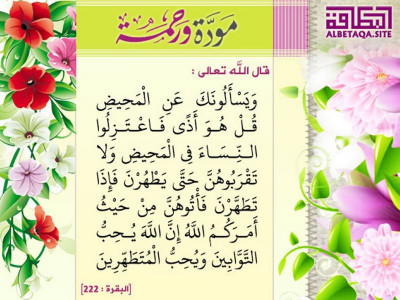 مَوَدَّة وَرَحْمَة
البطاقة
ALBETAQA.SITE
قال اللَّه تعالى :
وَيَسْأَلُونَكَ عَنِ الْمَحِيضِ
قُلْ هُوَ أَذًى فَاعْتَزِلُوا
النِّسَاءَ فِي الْمَحِيضِ وَلَا
تَقْرَبُوهُنَّ حَتَّى يَطْهُرْنَ فَإِذَا
تَطَهَّرْنَ فَأْتُوهُنَّ مِنْ حَيْثُ
أَمَرَكُمُ اللَّهُ إِنَّ اللَّهَ يُحِبُّ
التَّوَّابِينَ وَيُحِبُّ الْمُتَطَهِّرِينَ
[البقرة : 222]